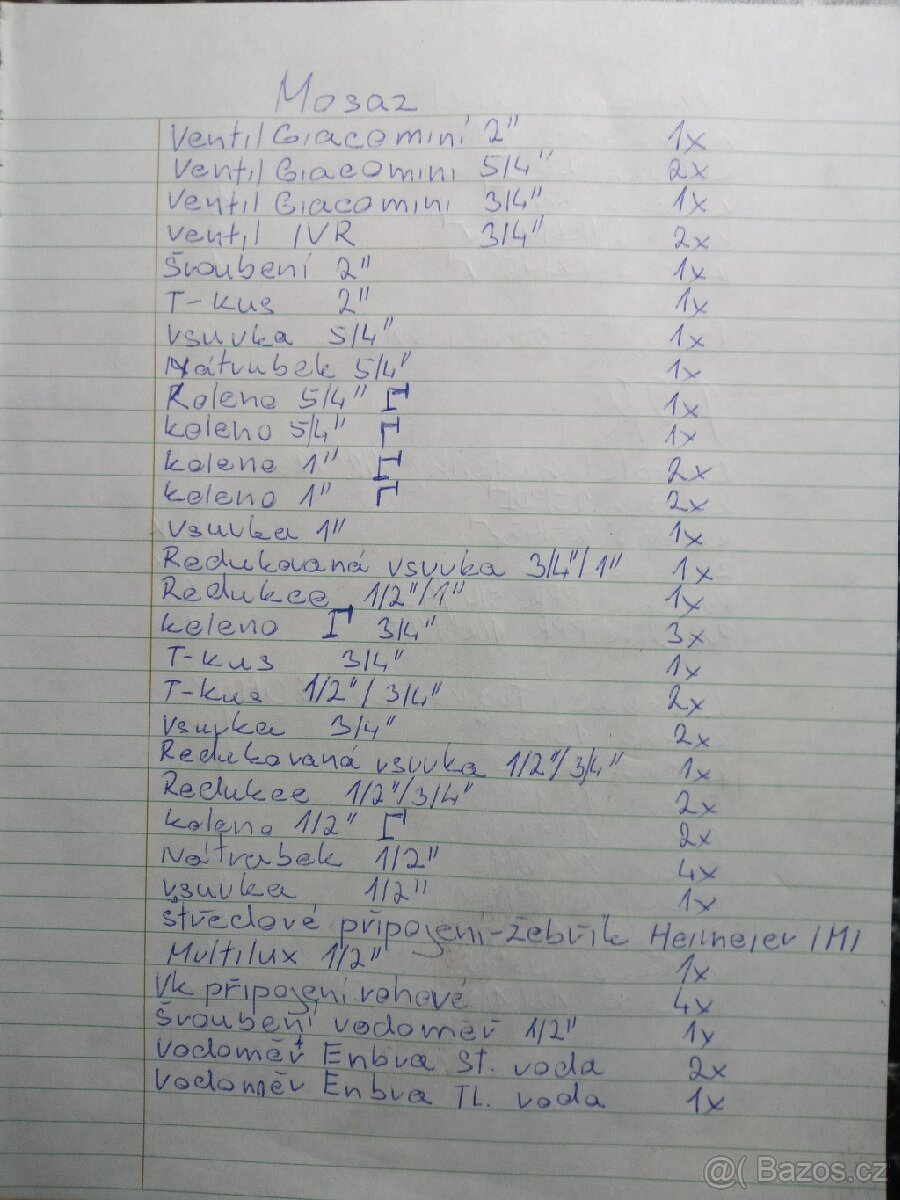 Mosaz
Ventil Giacomini 2" 1x
Ventil Giacomini 5/4" 2x
Ventil Giacomini 3/4" 1x
Ventil IVR 3/4" 2x
Šroubení 2" 1x
T-kus 2" 1x
Vsuvka 5/4" 1x
Nátrubek 5/4" 1x
Koleno 5/4" 1x
koleno 5/4" 1x
koleno 1" 2x
koleno 1" 2x
Vsuvka 1" 1x
Redukovaná vsuvka 3/4"/1" 1x
Redukce 1/2"/1" 1x
koleno 3/4" 3x
T-kus 3/4" 1x
T-kus 1/2"/3/4" 2x
vsuvka 3/4" 2x
Redukovaná vsuvka 1/2"/3/4" 1x
Redukce 1/2"/3/4" 2x
koleno 1/2" 2x
Nátrubek 1/2" 4x
vsuvka 1/2" 1x
Středové připojení-žebřík Heimeier IMI
Multilux 1/2" 1x
Vk připojení rohové 4x
Šroubení vodoměr 1/2" 1x
Vodoměr Enbra St. voda 2x
Vodoměr Enbra TL. voda 1x
@( Bazos.cz